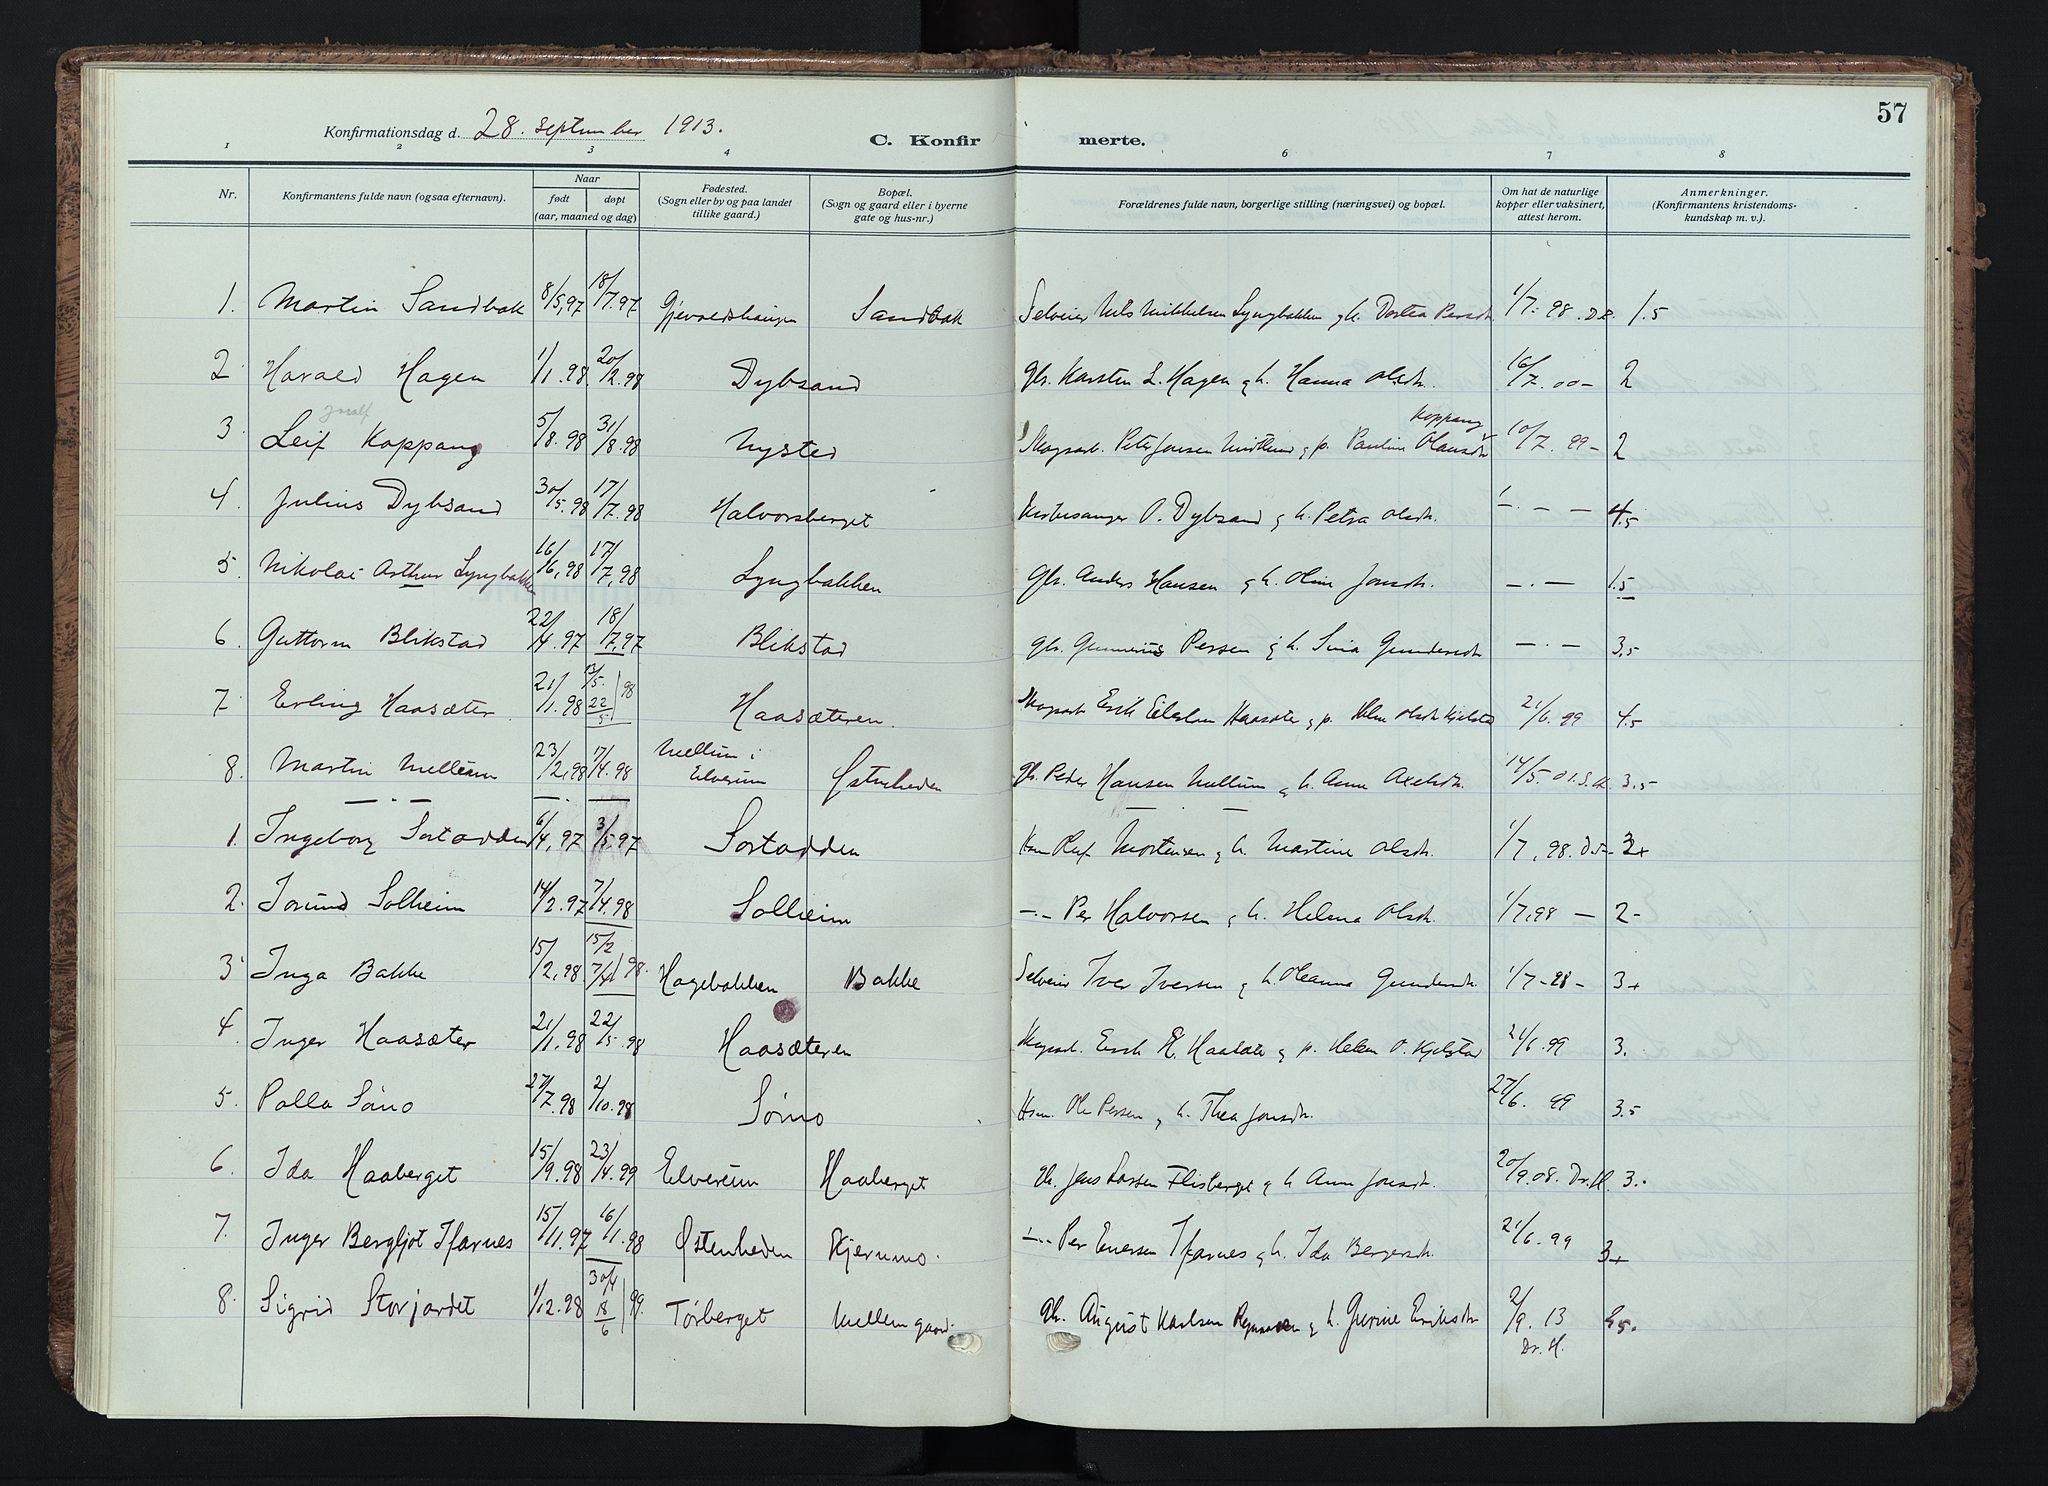 57
Konfirmationsdag d. 28. september 1913.
C. Konfirmerte.
1 2 3 4 5 6 7 8
Nr. Konfirmantens fulde navn (ogsaa efternavn). Naar født døpt (aar, maaned og dag) Fødested. (Sogn eller by og paa landet tillike gaard.) Bopæl. (Sogn og gaard eller i byerne gate og hus-nr.) Forældrenes fulde navn, borgerlige stilling (næringsvei) og bopæl. Om hat de naturlige kopper eller vaksinert, attest herom. Anmerkninger. (Konfirmantens kristendomskundskap m. v.).
1. Martin Sandbak 8/5,97 18/7.97 Gjevaldshaugen Sandbak Selveier Nils Mikkelsen Lyngbakken g h. Dortea Persdt. 1/7-98. 1.5
2 Harald Hagen 1/1.98 20/2.98 Dybsand Gbr. Karsten L. Hagen g h. Hanna Olsdt. 16/7.00- 2
3 Leif Koppang 5/8.98 31/8.98 Nysted Skogsarb. Peter Jonsen g p. Pauline Olausdt. Koppang 10/7.99- 2
4. Julius Dybsand 30/5.98 17/7.98 Halvorsberget Kirkesanger O. Dybsand g h. Petra Olsdt. - . - - 4.5
5. Nikolai Arthur Lyngbakken 16/6,98 17/7,98 Lyngbakken Gbr. Anders Hansen g h. Oline Jonsdt. - . - 1.5
6. Guttorm Blikstad 22/4.97 18/7,97 Blikstad Gbr. Gunnerius Persen g h. Sina Gundersdt. - . - 3,5
7. Erling Haasæter 21/1.98 13/5. 22/5 98 Haasæteren. Skogsarb. Erik Haasæter g p. Helen Olsdt. Kjølstad 21/6.99 4.5
8. Martin Mellum 23/2,98 17/4.98 Mellum i Elverum Østenheden Gbr. Peder Hansen Mellum g h. Anne Axelsdt. 14/5.01. 3.5
- . -
1. Ingeborg Sortadden 6/4,97 3/5.97 Sortadden Hsm. Olaf Mortensen g h. Martine Olsdt. 1/7,98. 3+
2. Jorund Solheim 14/2.97 7/4.98 Solheim -.- Per Halvorsen g h. Helena Olsdt. 1/7,98 - 2-
3. Inga Bakke 15/2,98 15/2 7/4 98. Hagebakken Bakke Selveier Iver Iversen g h. Oleanna Gundersdt. 1/7-98- 3+
4. Inger Haasæter 21/1,98 22/5 98 Haasæteren Skogsarb. Erik E. Haasæter g p. Helen O. Kjølstad 21/6.99 3.
5. Palla Sørmo 27/7.98 2/10.98 Sørmo Hsm. Ole Persen g h. Thea Jonsdt. 27/6. 99 3.5
6. Ida Haaberget 15/9.98 23/4.99 Elverum Haaberget Gbr. Jens Larsen Flisberget g h Anne Jonsdt. 20/9.08. Dr. H. 3.-
7. Inger Bergljot Tfarnes 15/11.97 16/1.98 Østenheden Kjernmo. -.- Per Enersen Tfarnes g h. Ida Bergersdt. 21/6.99 3+
8. Sigrid Storjordet 1/12.98 30/4 18/6 99. Tørberget Mellemgaard. Gbr. August Karlsen g h. Gurine Eriksdt. 2/9.13 Dr. H.